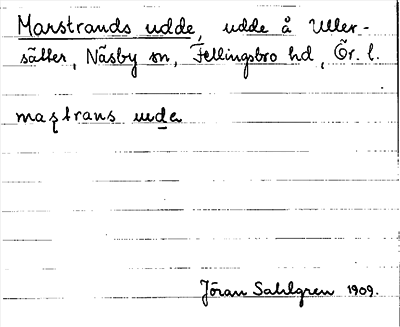 Marstrands udde, udde å Uller-
sätter, Näsby sn, Fellingsbro hd, Ör. l.
maʂtrans uda
Jöran Sahlgren 1909.